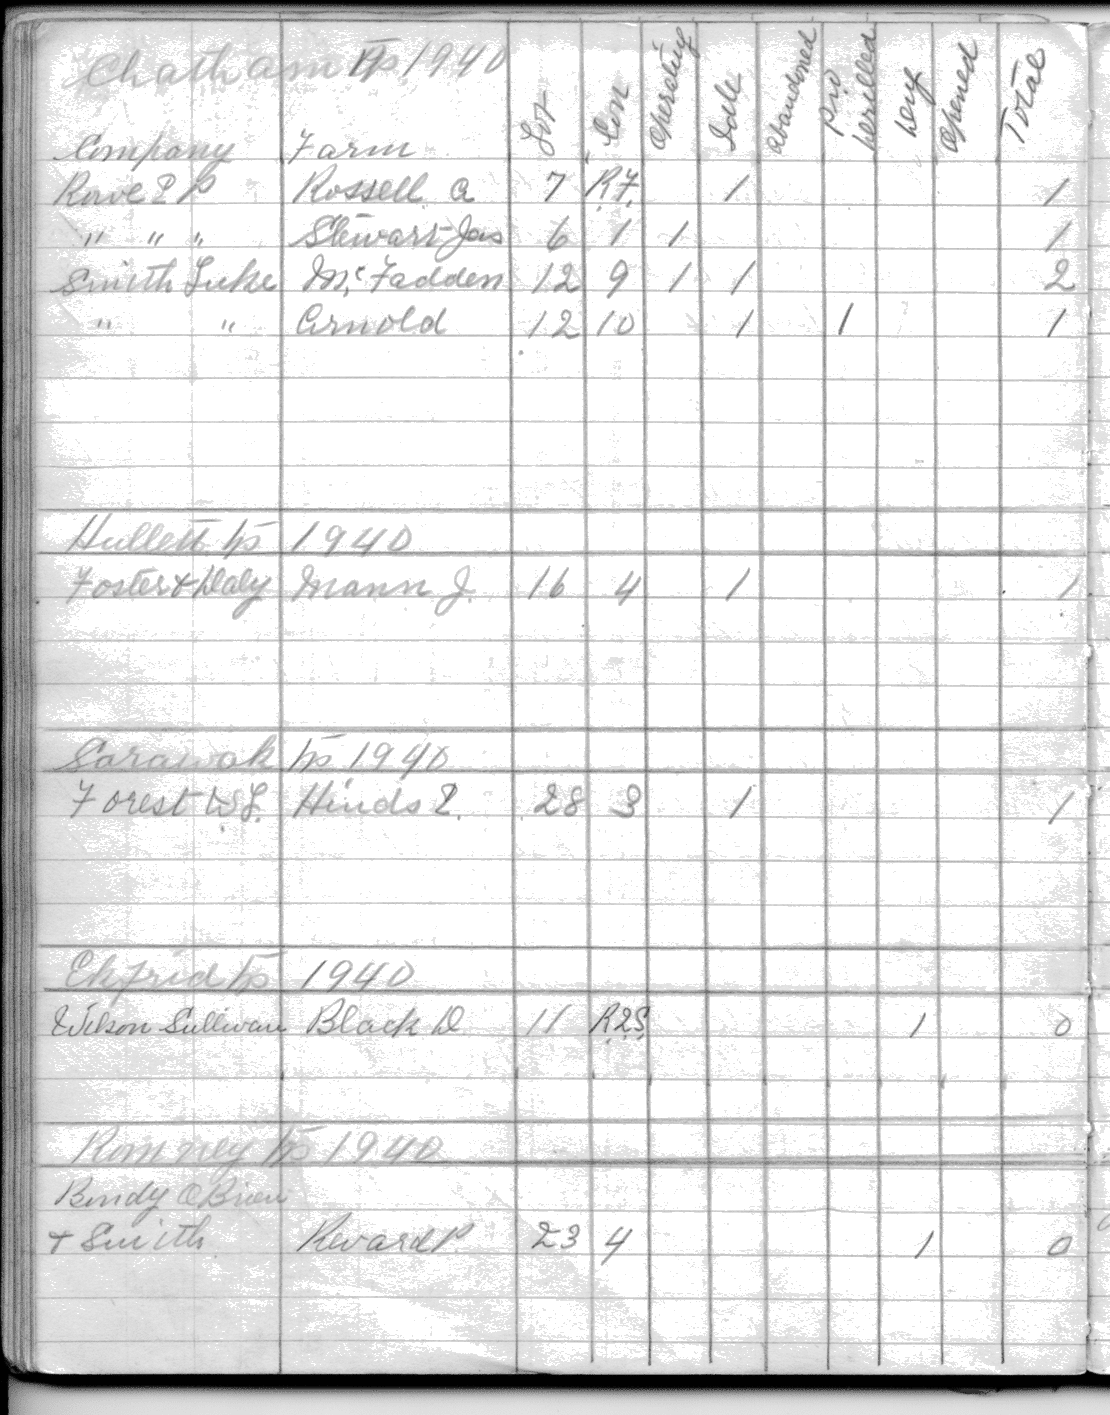 Chatham Tp 1940
Company Farm Lot Con Operating Idle Abandoned Prod Drilled Dry Opened Total
Rowe E P Rossell A 7 R.F. 1 1
" " " Stewart Jas 6 1 1 1
Smith Luke McFadden 12 9 1 1 2
" " Arnold 12 10 1 1 1
Hullett Tp 1940
Foster & Daly Mann J. 16 4 1 1
Sarawak Tp 1940
Forest W.J. Hinds E. 28 3 1 1
Ekfrid Tp 1940
Wilson Sullivan Black D 11 R.2S. 1 0
Romney Tp 1940
Bendy O Brien
+ Smith Reward P. 23 4 1 0